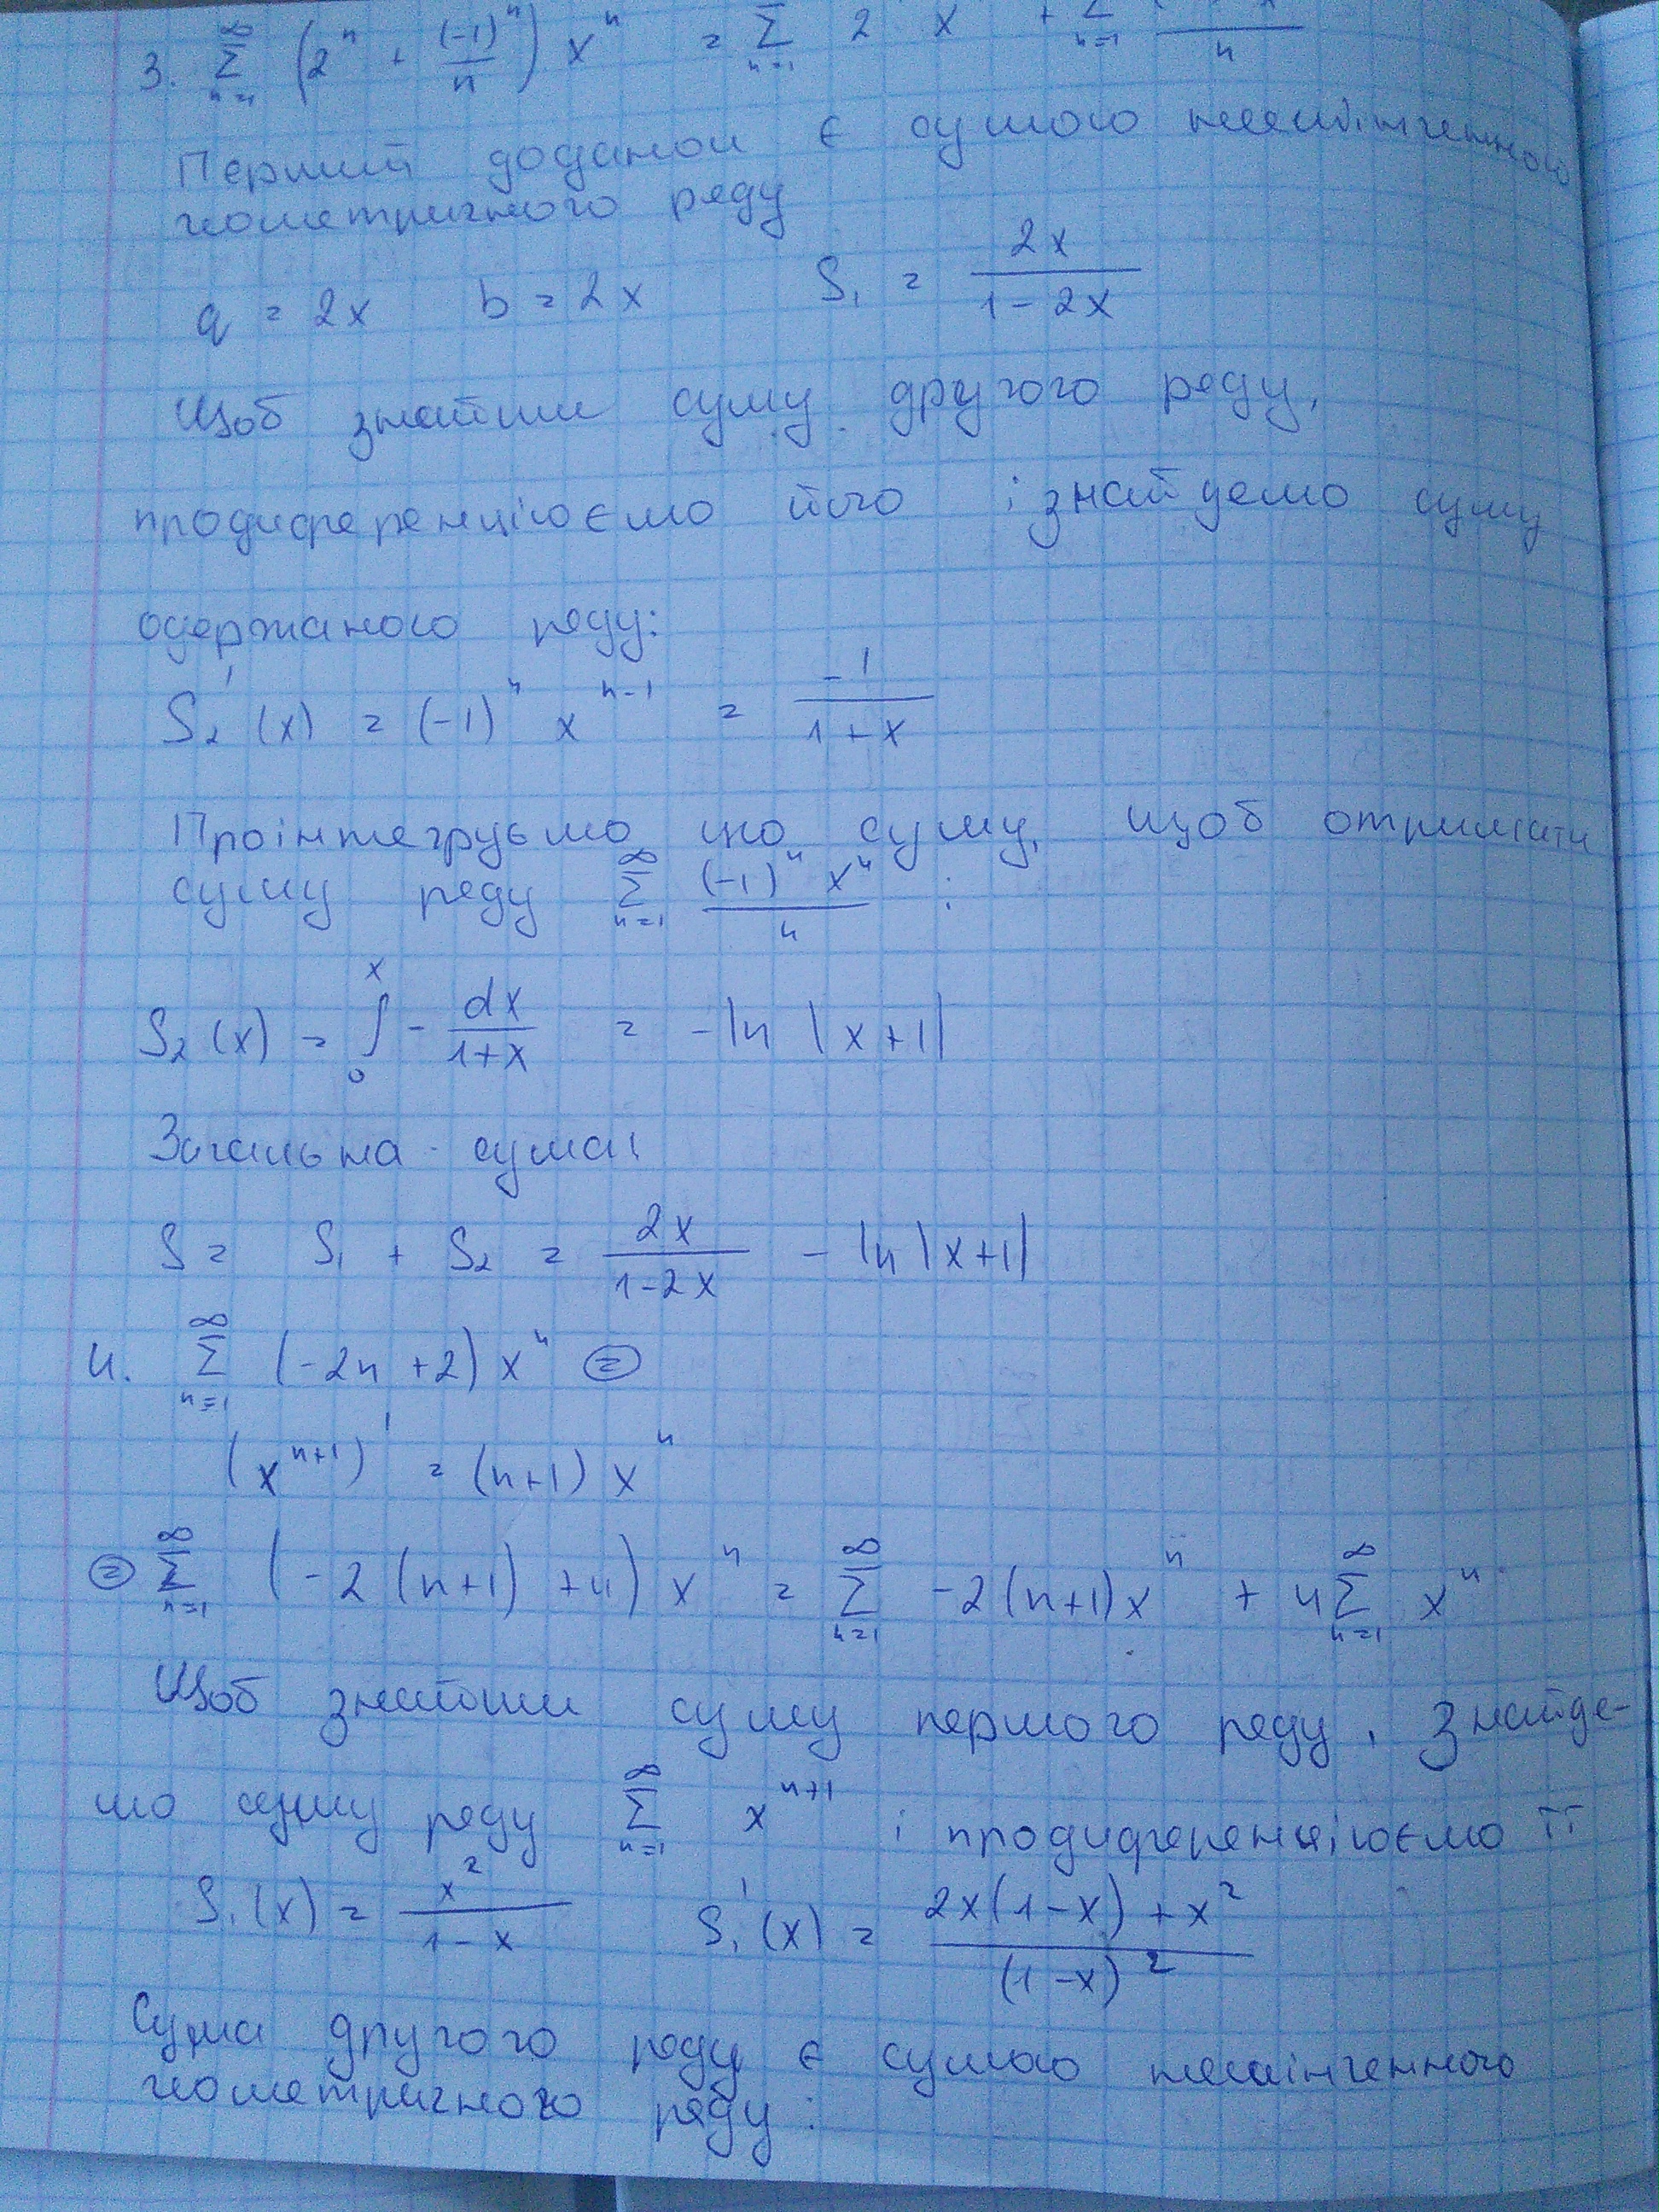 3. ∞ Σ n=1 (2^n + (-1)^n / n) x^n = Σ n=1 2 x + Σ n=1 / n
Перший доданок є сумою нескінченного
геометричного ряду
q = 2x b = 2x S₁ = 2x / (1-2x)
Щоб знайти суму другого ряду,
продиференціюємо його і знайдемо суму
одержаного ряду:
S₂'(x) = (-1)^n x^(n-1) = -1 / (1+x)
Проінтегруємо цю суму, щоб отримати
суму ряду ∞ Σ n=1 (-1)^n x^n / n :
S₂(x) = ∫₀^x - dx / (1+x) = -ln |x+1|
Загальна сума:
S = S₁ + S₂ = 2x / (1-2x) - ln|x+1|
4. ∞ Σ n=1 (-2n+2) x^n ⊜
(x^(n+1))' = (n+1) x^n
⊜ ∞ Σ n=1 (-2(n+1)+4) x^n = ∞ Σ n=1 -2(n+1)x^n + 4 ∞ Σ n=1 x^n
Щоб знайти суму першого ряду, знайде-
мо суму ряду ∞ Σ n=1 x^(n+1) і продиференціюємо її
S₁(x) = x² / (1-x) S₁'(x) = (2x(1-x)+x²) / (1-x)²
Сума другого ряду є сумою нескінченного
геометричного ряду: